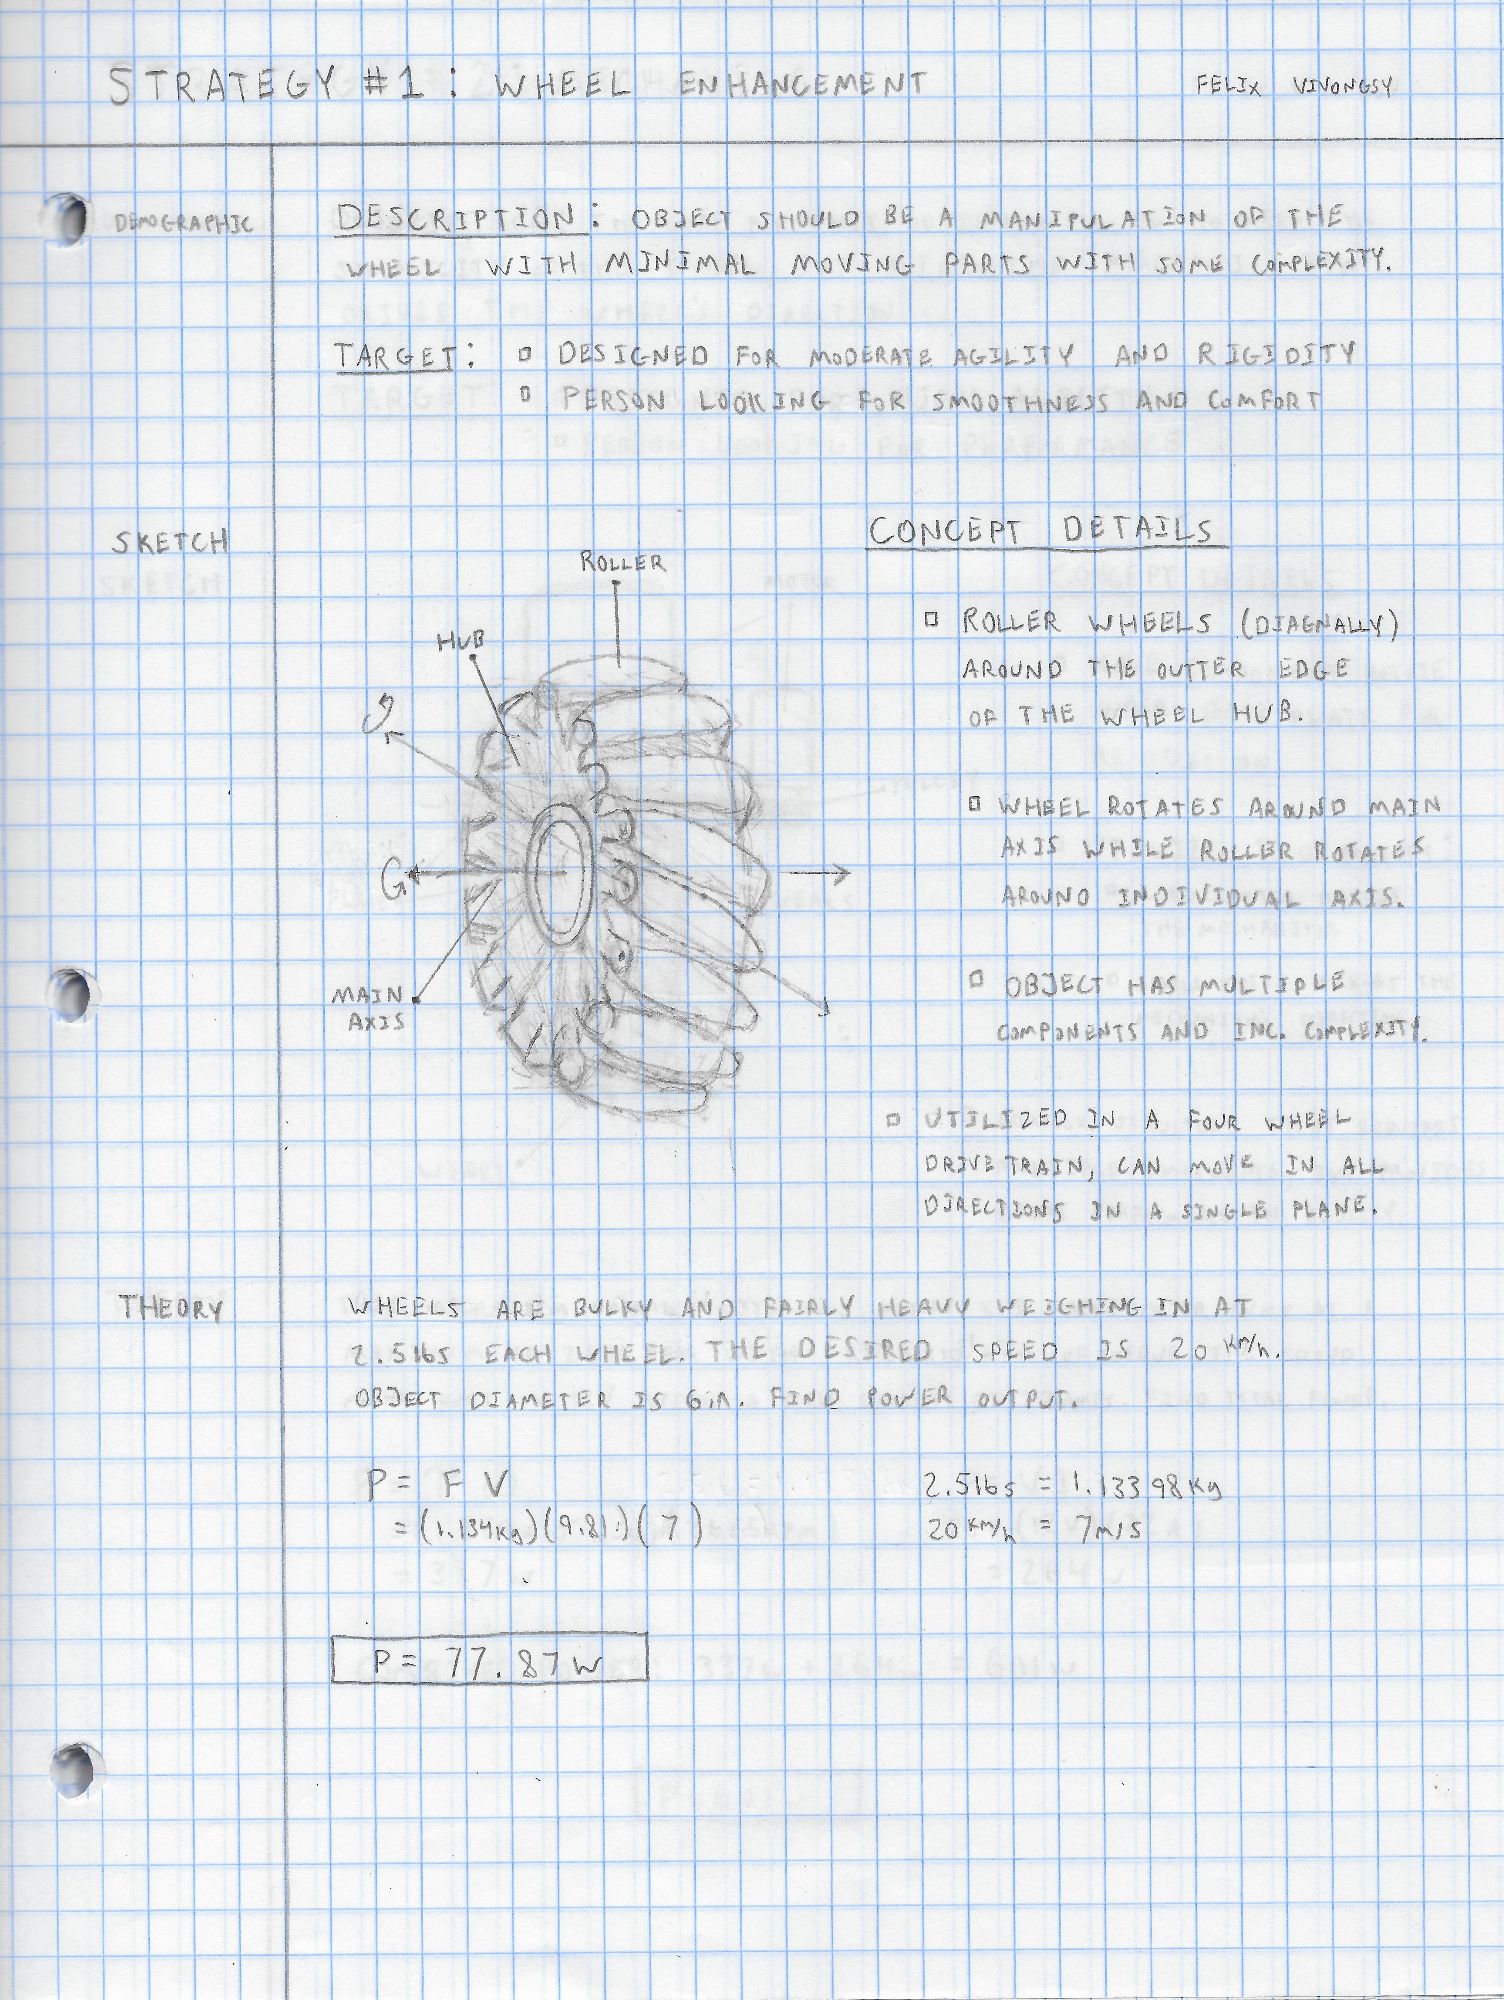 STRATEGY #1: WHEEL ENHANCEMENT
FELIX VIVONGSY
DEMOGRAPHIC
DESCRIPTION: OBJECT SHOULD BE A MANIPULATION OF THE
WHEEL WITH MINIMAL MOVING PARTS WITH SOME COMPLEXITY.
TARGET: □ DESIGNED FOR MODERATE AGILITY AND RIGIDITY
□ PERSON LOOKING FOR SMOOTHNESS AND COMFORT
SKETCH
ROLLER
HUB
MAIN
AXIS
CONCEPT DETAILS
□ ROLLER WHEELS (DIAGNALLY)
AROUND THE OUTTER EDGE
OF THE WHEEL HUB.
□ WHEEL ROTATES AROUND MAIN
AXIS WHILE ROLLER ROTATES
AROUND INDIVIDUAL AXIS.
□ OBJECT HAS MULTIPLE
COMPONENTS AND INC. COMPLEXITY.
□ UTILIZED IN A FOUR WHEEL
DRIVETRAIN, CAN MOVE IN ALL
DIRECTIONS IN A SINGLE PLANE.
THEORY
WHEELS ARE BULKY AND FAIRLY HEAVY WEIGHING IN AT
2.5lbs EACH WHEEL. THE DESIRED SPEED IS 20 Km/h.
OBJECT DIAMETER IS 6in. FIND POWER OUTPUT.
P = F V
= (1.134Kg)(9.81)(7)
2.5lbs = 1.13398Kg
20 Km/h = 7m/s
P = 77.87W